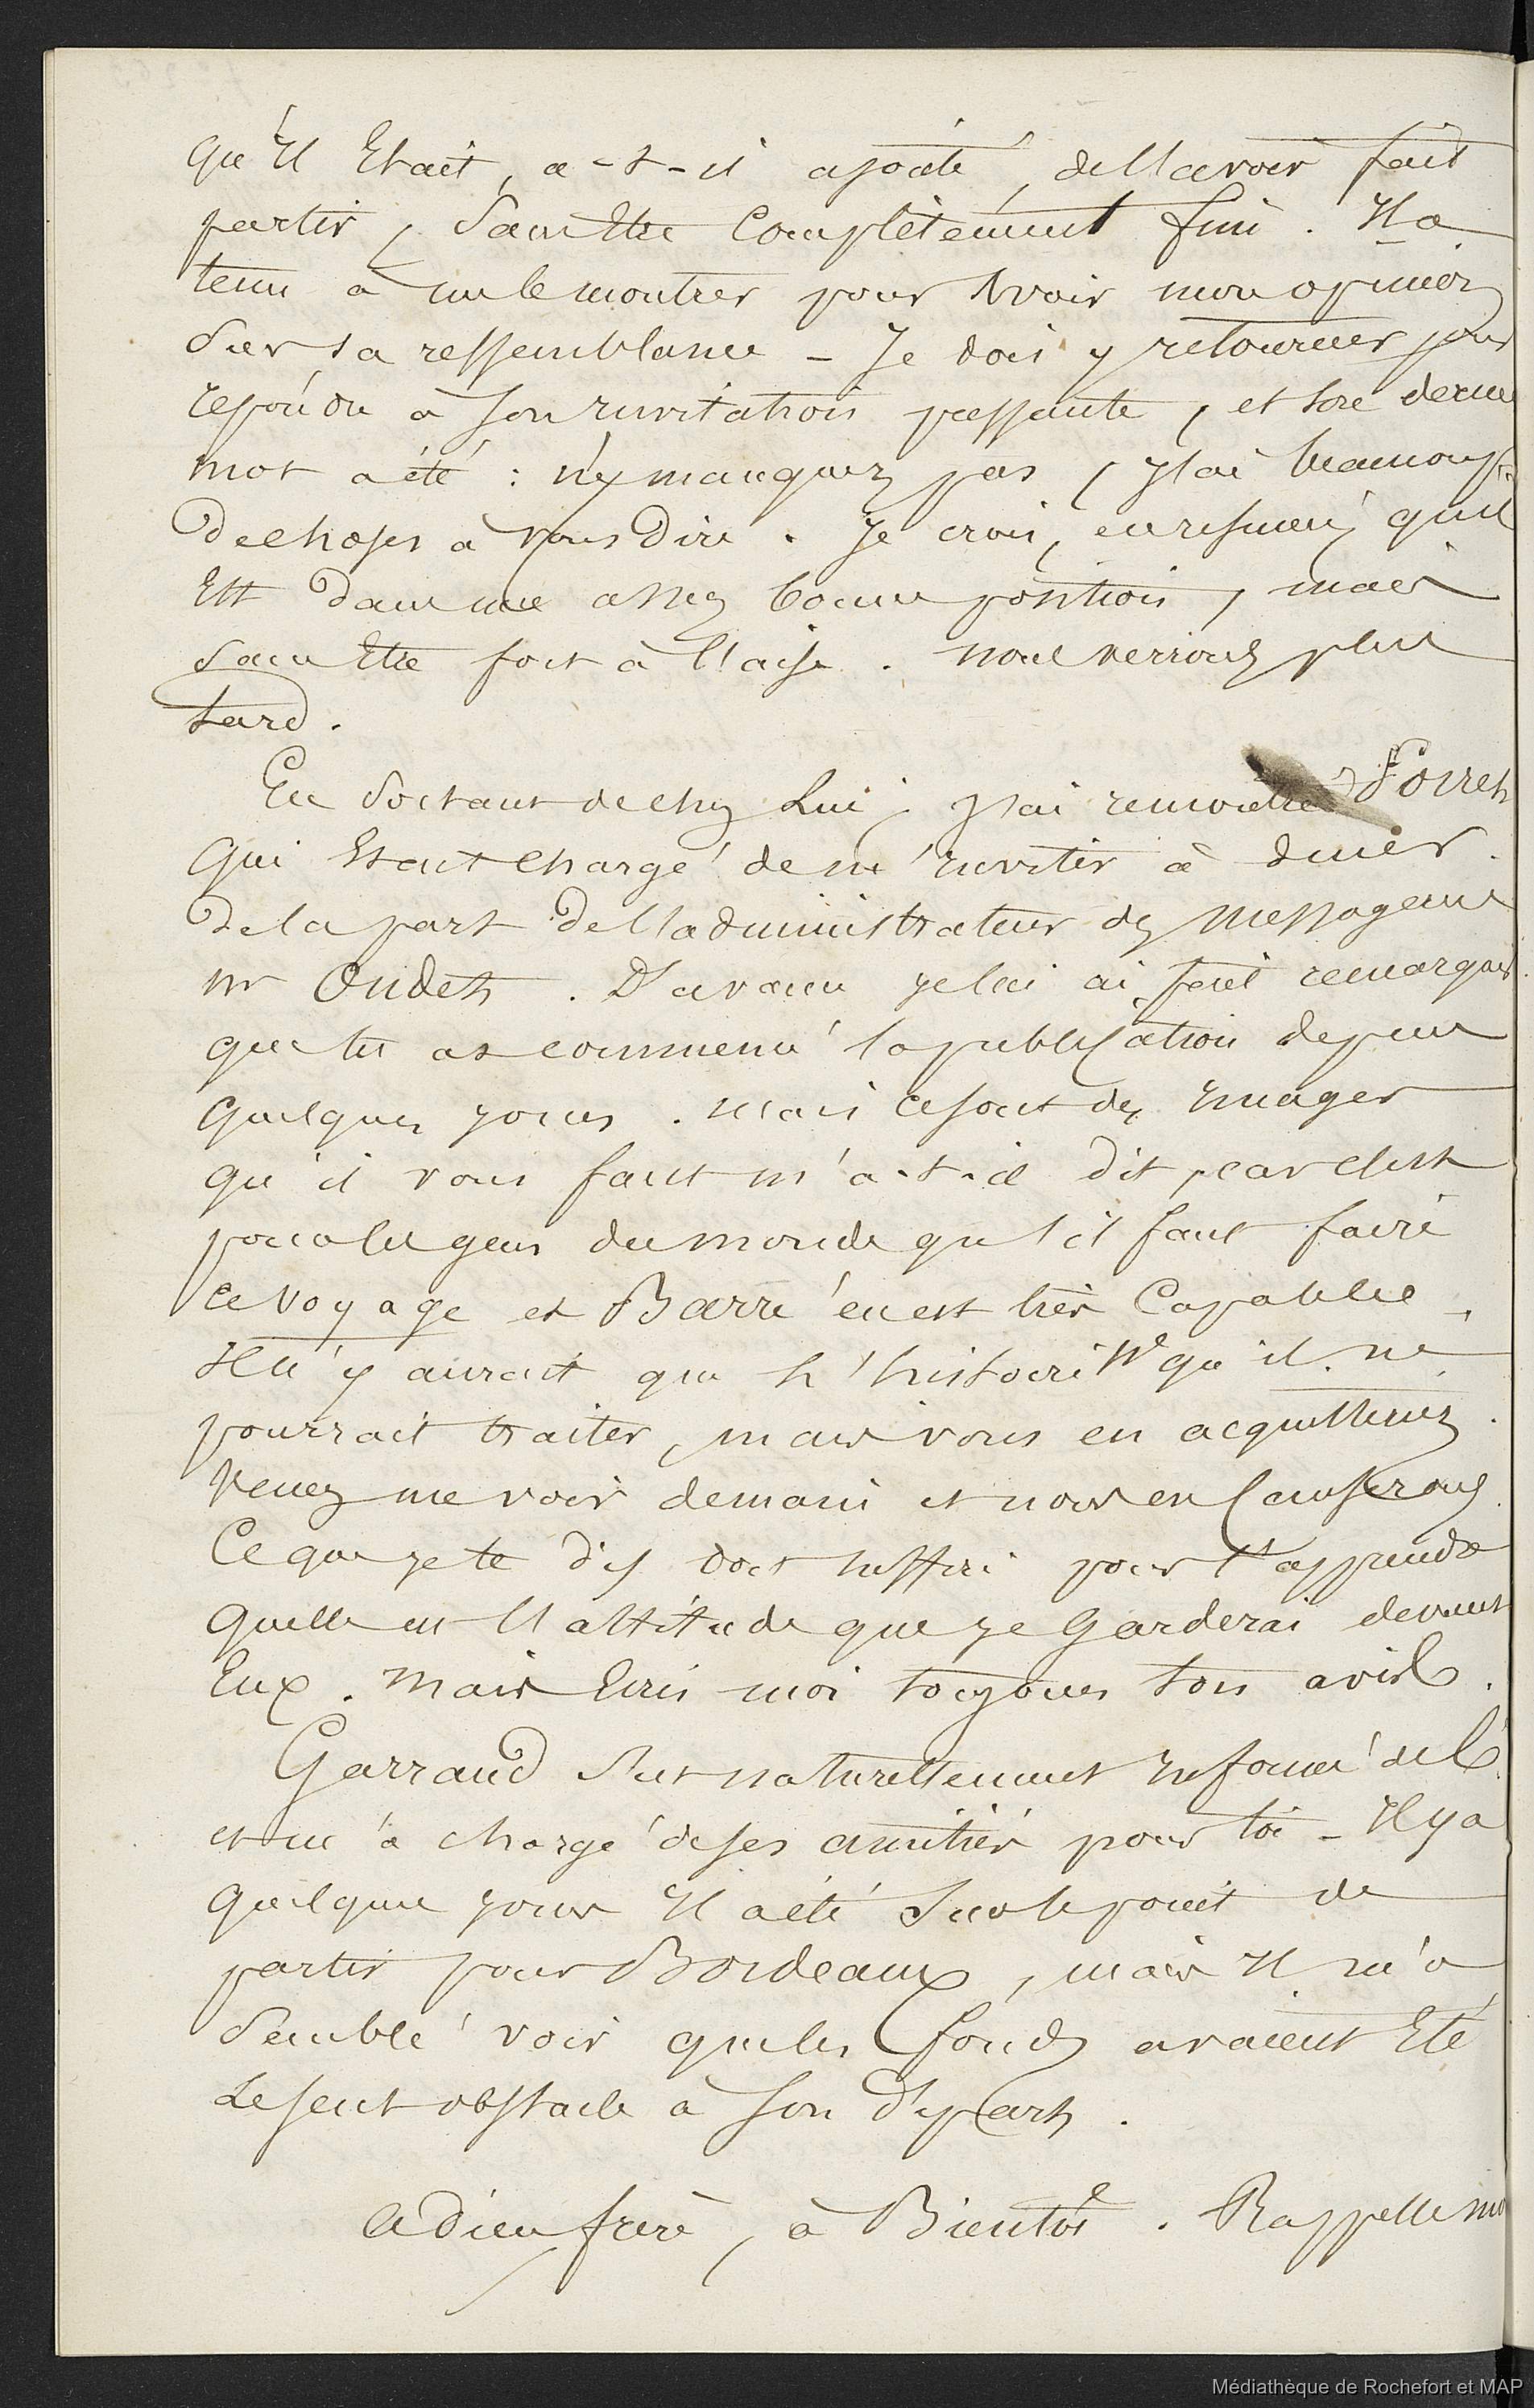 qu'il Etait, a-t-il ajouté, de l'avoir fait
partir, sans Etre Complètement fini. Il a
tenu à me le montrer pour avoir mon opinion
sur sa ressemblance - Je dois y retourner pour
répondre à son invitation pressante, et son dernier
mot a été : n'y manquez pas, j'ai beaucoup
de choses à vous Dire. Je crois, en résumé, qu'il
Est dans une assez bonne position, mais
sans Etre fort à l'aise. nous verrons plus
tard.
En sortant de chez Lui, j'ai rencontré
qui Etait chargé de m'inviter à diner
de la part de l'administrateur des messageries
mr Oudet. D'avance je lui ai fait remarquer
que tu as commencé la publication depuis
quelques jours. mais ce sont des Images
qu'il vous faut m'a-t-il dit, car c'est
pour les gens du monde qu'il faut faire
ce voyage et Barré en est très Capable.
Il n'y aurait que l'histoire Nle qu'il ne
pourrait traiter, mais vous en acquitteriez.
Venez me voir demain et nous en Causerons.
Ce que je te dis doit suffire pour t'apprendre
quelle est l'attitude que je garderai devant
Eux. mais Ecris moi toujours ton avis.
Garraud s'est naturellement Informé de
et m'a chargé de ses amitiés pour toi - Il y a
quelques jours Il a été sur le point de
partir pour Bordeaux, mais Il m'a
semblé voir que les fonds avaient Eté
Le seul obstacle à son départ.
adieu frère, à Bientôt. Rappelle moi
Médiathèque de Rochefort et MAP